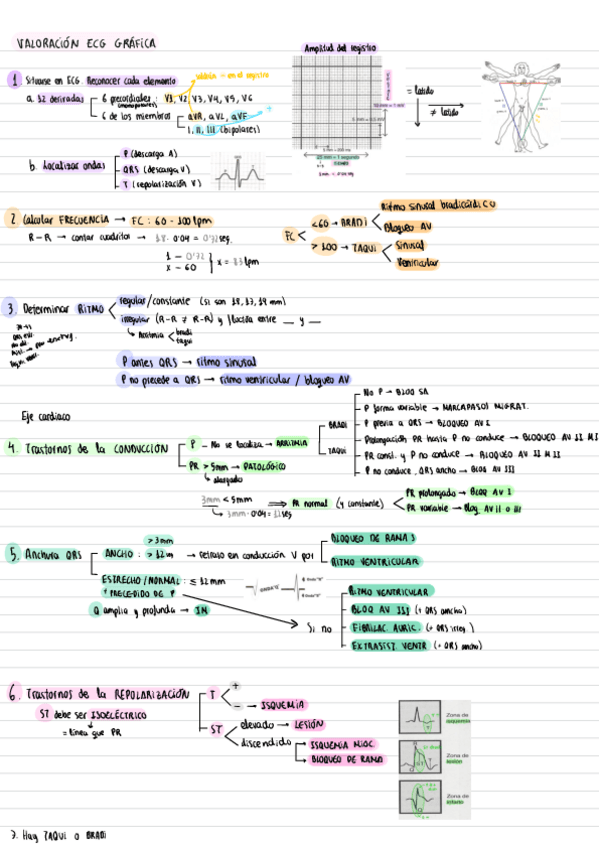 VALORACIÓN ECG GRÁFICA
Amplitud del registro
1. Situarse en ECG. Reconocer cada elemento
a. 12 derivadas
6 precordiales: V1, V2, V3, V4, V5, V6
(monopolares)
6 de los miembros
aVR, aVL, aVF
I, II, III (bipolares)
= latido
≠ latido
b. Localizar ondas
P (descarga A)
QRS (descarga V)
T (repolarización V)
2. Calcular FRECUENCIA → FC: 60 - 100 lpm
R-R → contar cuadritos → 18 · 0'04 = 0'72 seg.
1 - 0'72
x - 60
x = 83 lpm
FC
<60 → BRADI
Ritmo sinusal bradicárdico
Bloqueo AV
> 100 → TAQUI
Sinusal
Ventricular
3. Determinar RITMO
regular/constante (si son 18, 17, 19 mm)
irregular (R-R ≠ R-R) y oscila entre __ y __
↳ Arritmia
bradi
taqui
P antes QRS → ritmo sinusal
P no precede a QRS → ritmo ventricular / bloqueo AV
Eje cardiaco
4. Trastornos de la CONDUCCIÓN
P - No se localiza → ARRITMIA
PR > 5mm → PATOLÓGICO
↳ alargado
BRADI
TAQUI
No P → BLOQ SA
P forma variable → MARCAPASO MIGRAT.
P previa a QRS → BLOQUEO AV I
Prolongación PR hasta P no conduce → BLOQUEO AV II M I
PR const. y P no conduce → BLOQUEO AV II M II
P no conduce, QRS ancho → BLOQ AV III
3mm < 5mm
↳ 3mm · 0'04 = 12 seg
⟹ PR normal (y constante)
PR prolongado → BLOQ AV I
PR variable → Bloq. AV II o III
5. Anchura QRS
> 3mm
ANCHO: > 12 → retraso en conducción V por
BLOQUEO DE RAMAS
RITMO VENTRICULAR
ESTRECHO/NORMAL: ≤ 12 mm
+ PRECEDIDO DE P
Q amplia y profunda → IM
Si no
RITMO VENTRICULAR
BLOQ AV III (+ QRS ancho)
FIBRILAC. AURIC. (+ QRS irreg.)
EXTRASIST. VENTR (+ QRS ancho)
6. Trastornos de la REPOLARIZACIÓN
T
+
- → ISQUEMIA
ST debe ser ISOELÉCTRICO
= línea que PR
ST
elevado → LESIÓN
discendido
ISQUEMIA MIOC.
BLOQUEO DE RAMA
Zona de isquemia
Zona de lesión
Zona de infarto
7. Hay TAQUI o BRADI